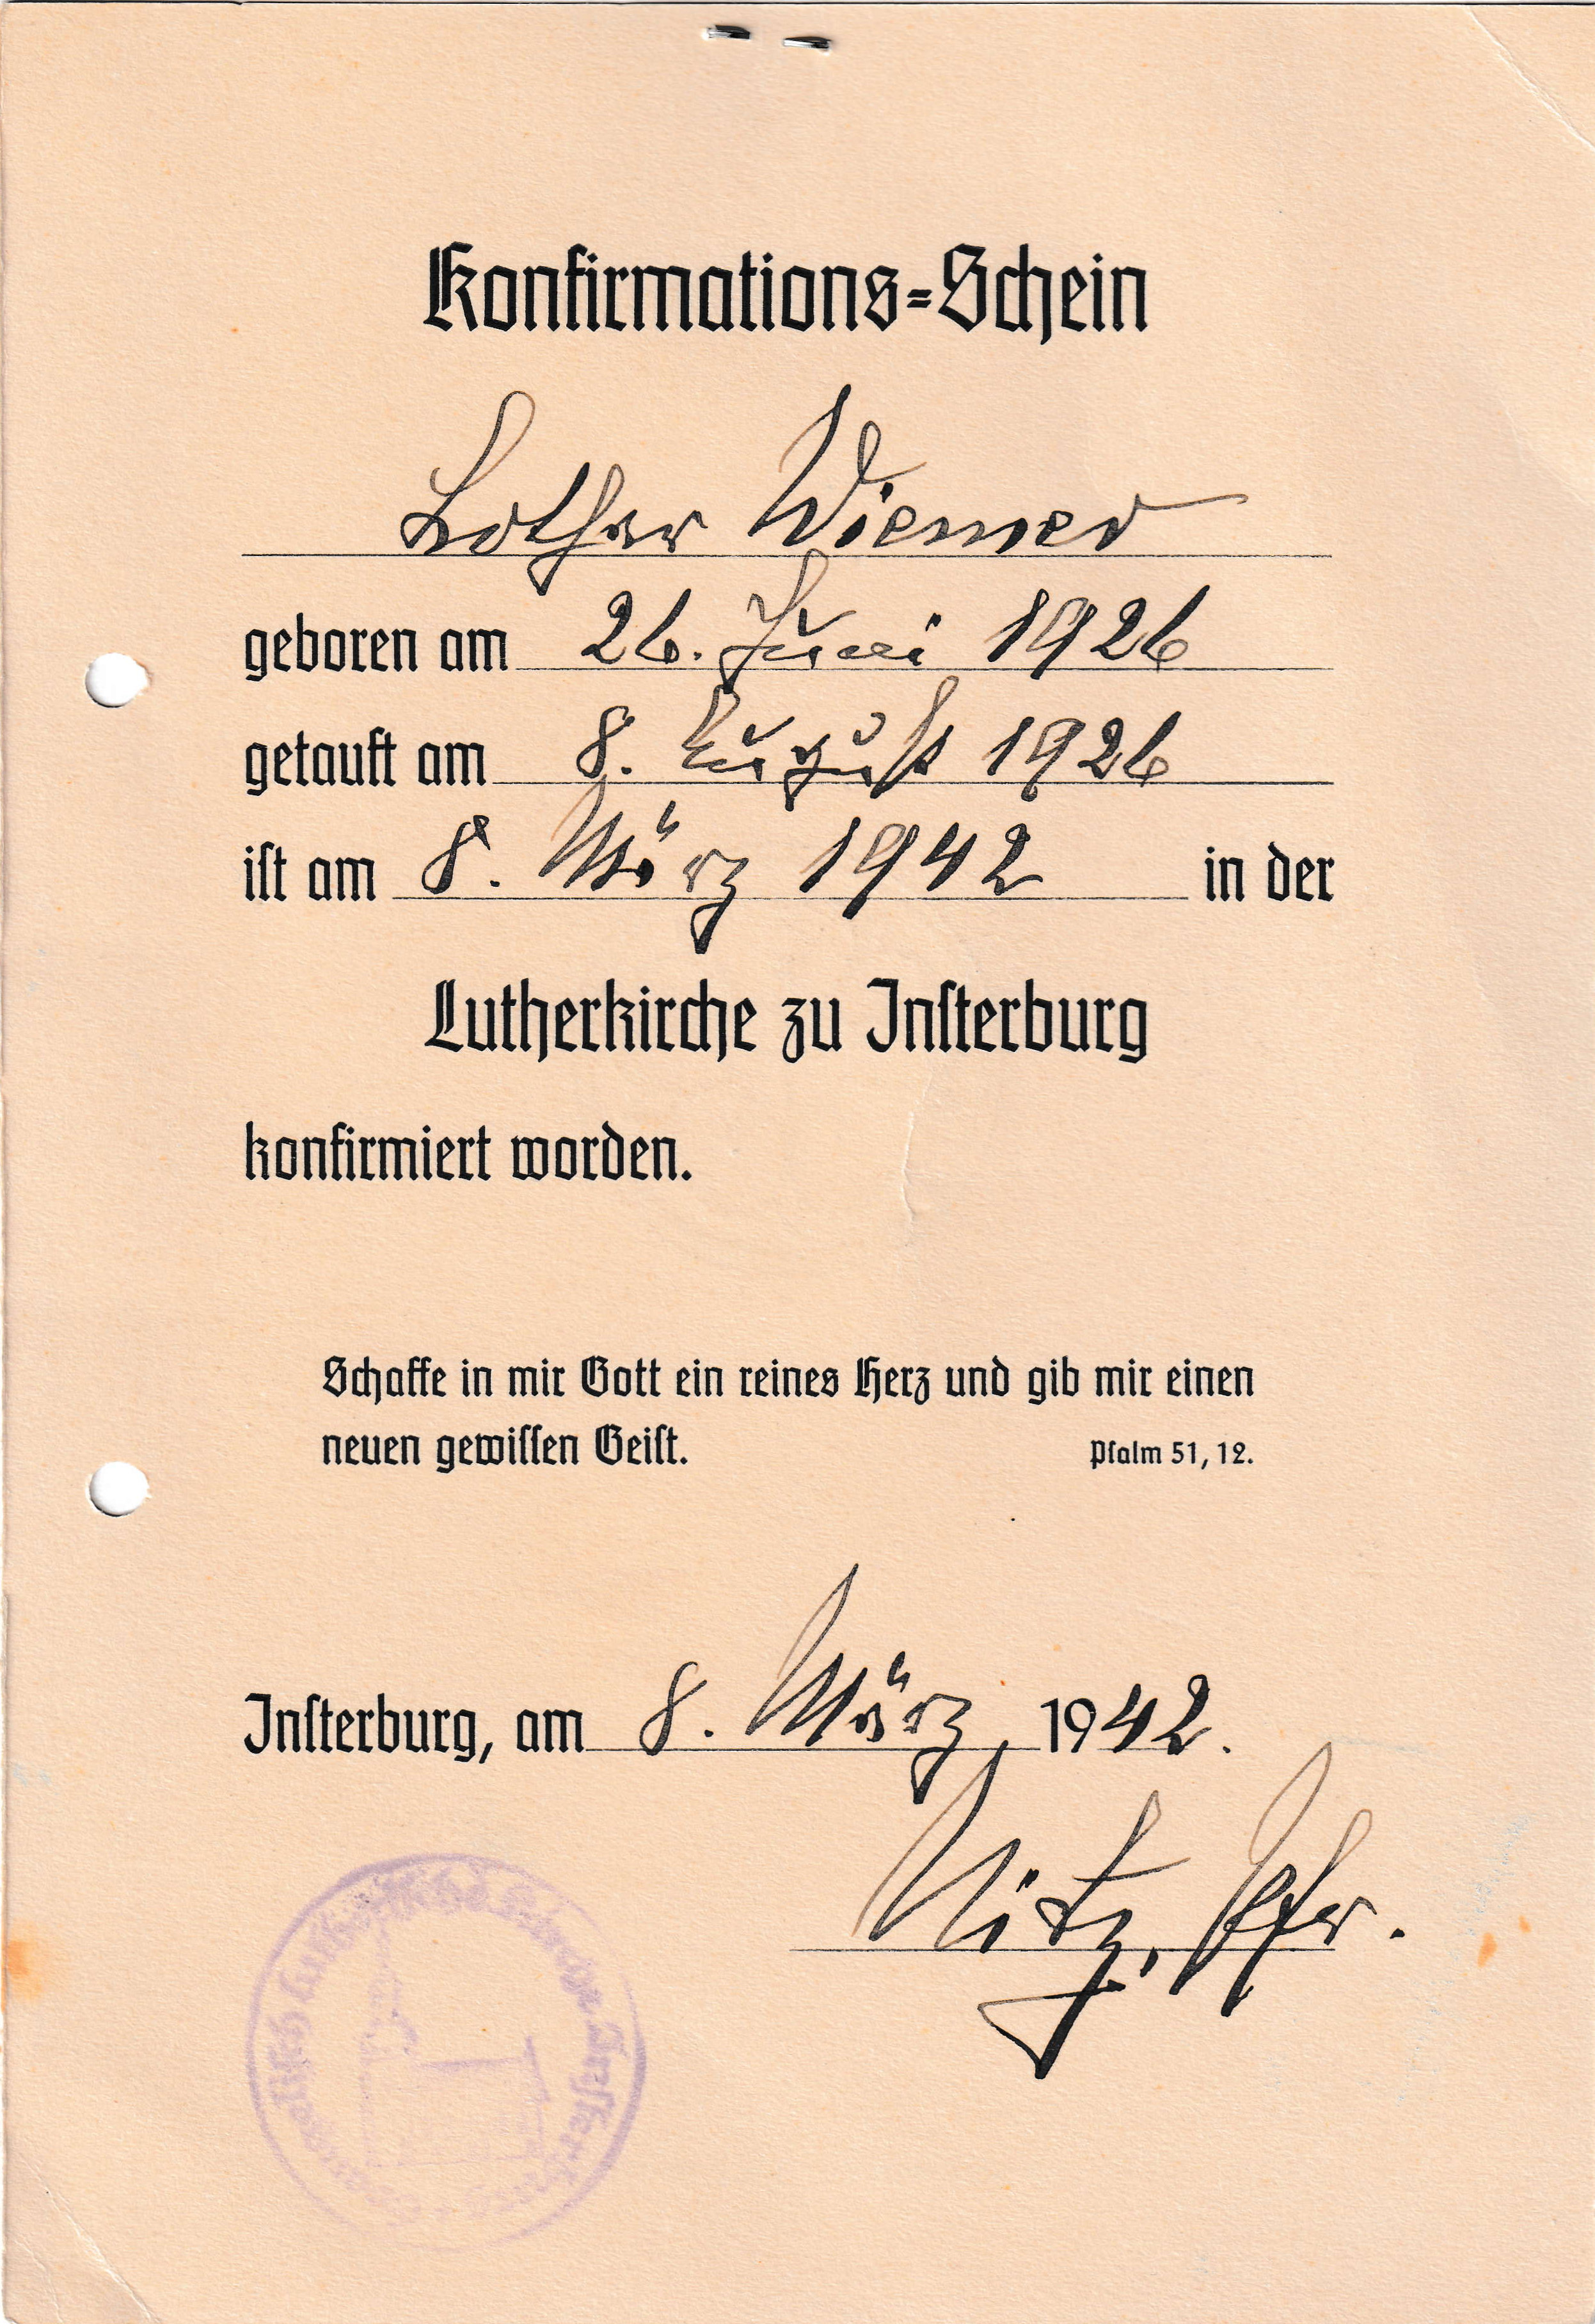 Konfirmations=Schein
Lothar Wiemer
geboren am 26. Juni 1926
getauft am 8. August 1926
iſt am 8. März 1942 in der
Lutherkirche zu Inſterburg
konfirmiert worden.
Schaffe in mir Gott ein reines Herz und gib mir einen
neuen gewiſſen Geiſt. Pſalm 51, 12.
Inſterburg, am 8. März 1942.
Nitz, Pfr.